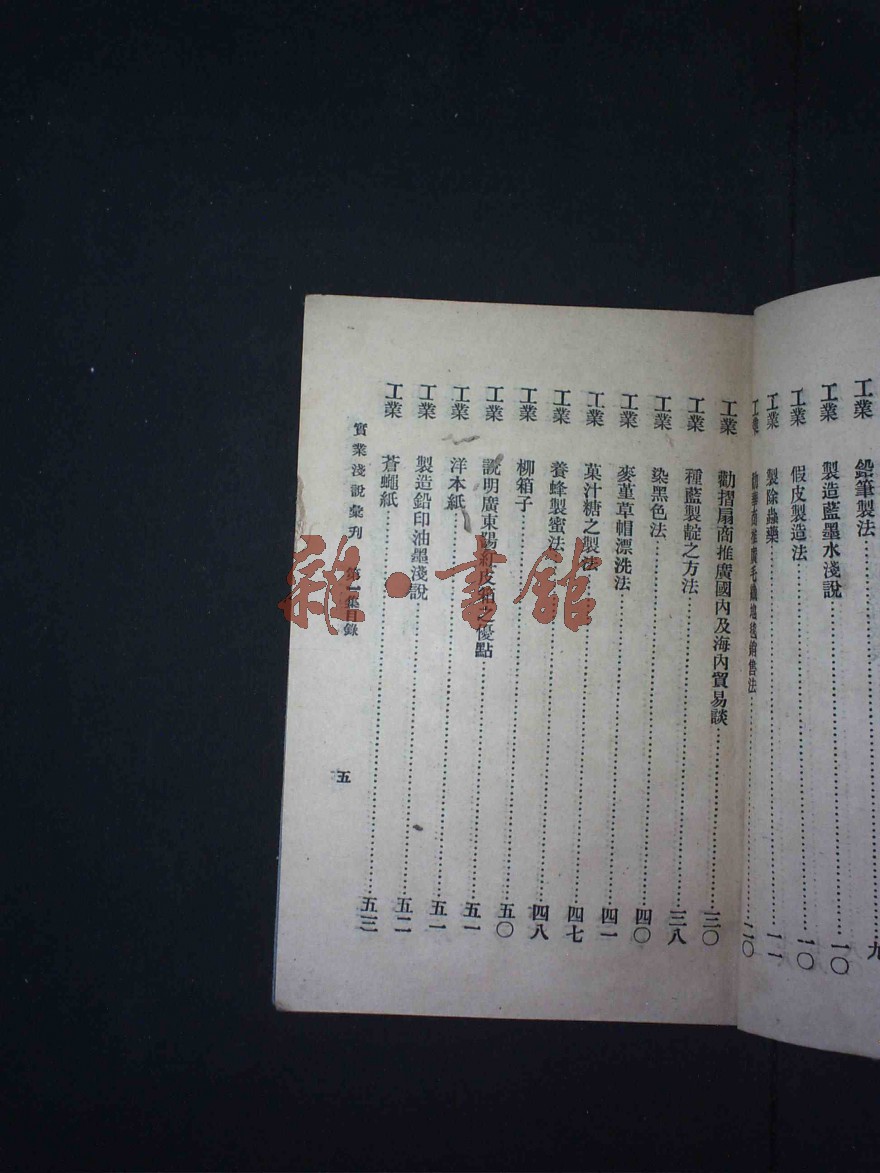 工業 鉛筆製法 九
工業 製造藍墨水淺說 一〇
工業 假皮製造法 一〇
工業 製除蟲藥 一一
工業 勸華商推廣毛織地毯銷售法 二〇
工業 勸摺扇商推廣國內及海內貿易談 三〇
工業 種藍製靛之方法 三八
工業 染黑色法 四〇
工業 麥草帽漂洗法 四一
工業 菓汁糖之製法 四七
工業 養蜂製蜜法 四八
工業 柳箱子 五〇
工業 說明廣東陽江皮箱之優點 五一
工業 洋本紙 五一
工業 製造鉛印油墨淺說 五二
工業 蒼蠅紙 五三
實業淺說彙刊 第一集目錄 五
雜·書館